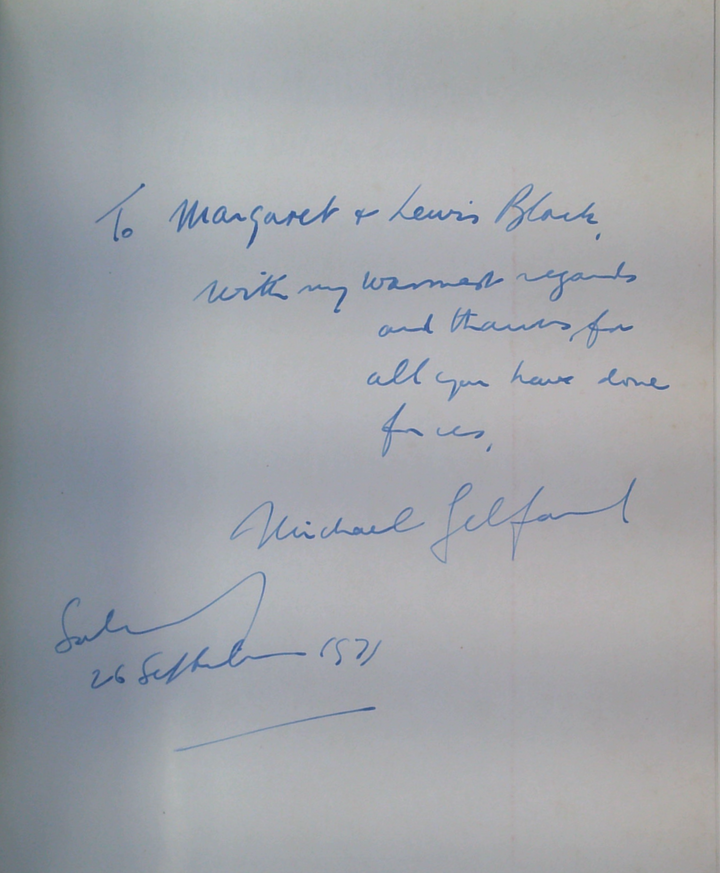 To Margaret + Lewis Block,
with my warmest regards
and thanks for
all you have done
for us,
Michael Gelfand
26 September 1971